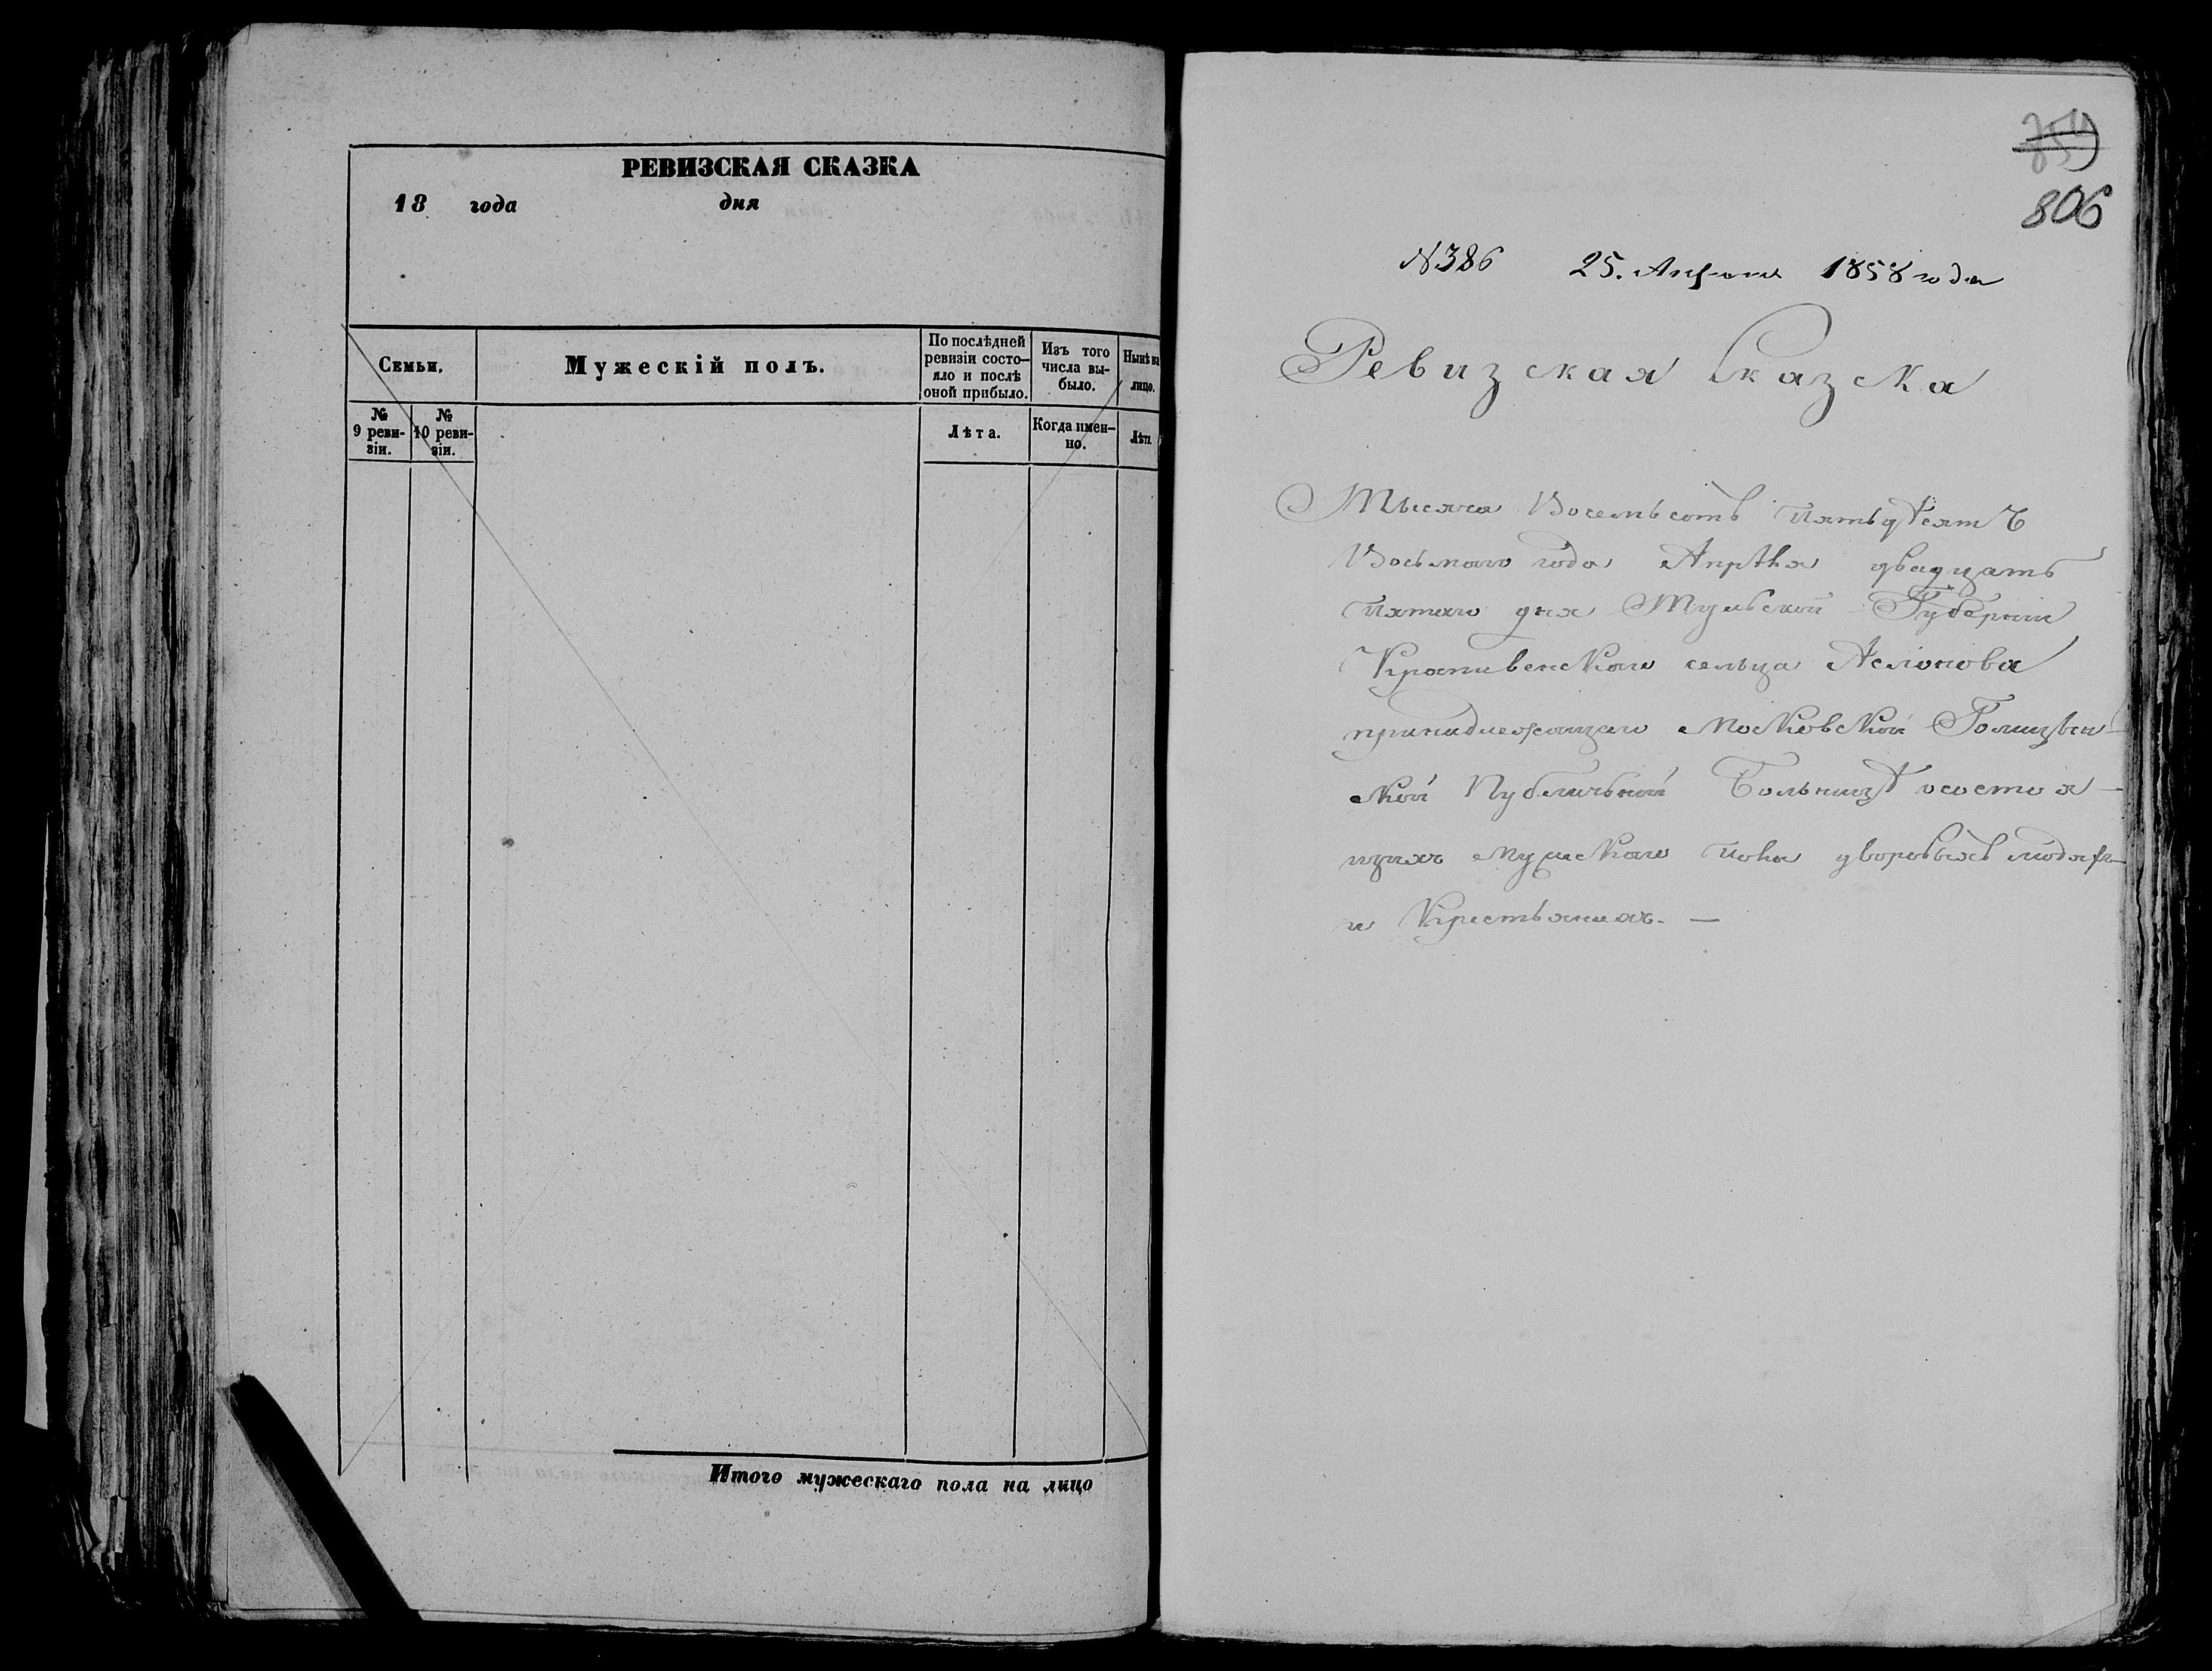 РЕВИЗСКАЯ СКАЗКА
18 года дня
Семьи.
Мужескій полъ.
По послѣдней ревизіи состо-
яло и послѣ
оной прибыло.
Изъ того
числа вы-
было.
Нынѣ на
лицо.
№
9 реви-
зіи.
№
10 реви-
зіи.
Лѣта.
Когда имен-
но.
Лѣта
Итого мужескаго пола на лицо
806
№386 25. Апреля 1858 года
Ревизская Сказска
Тысяча Восемьсотъ пятьдѣсятъ
Восьмаго года Апрѣля двадцать
пятаго дня Тульской Губернiи
Крапивенскаго сельца
принадлежащаго Московской Голицын-
ской Публичьной Больницѣ осостоя-
щихъ мужскаго пола дворовыхъ людяхъ
и Крестьянихъ. —